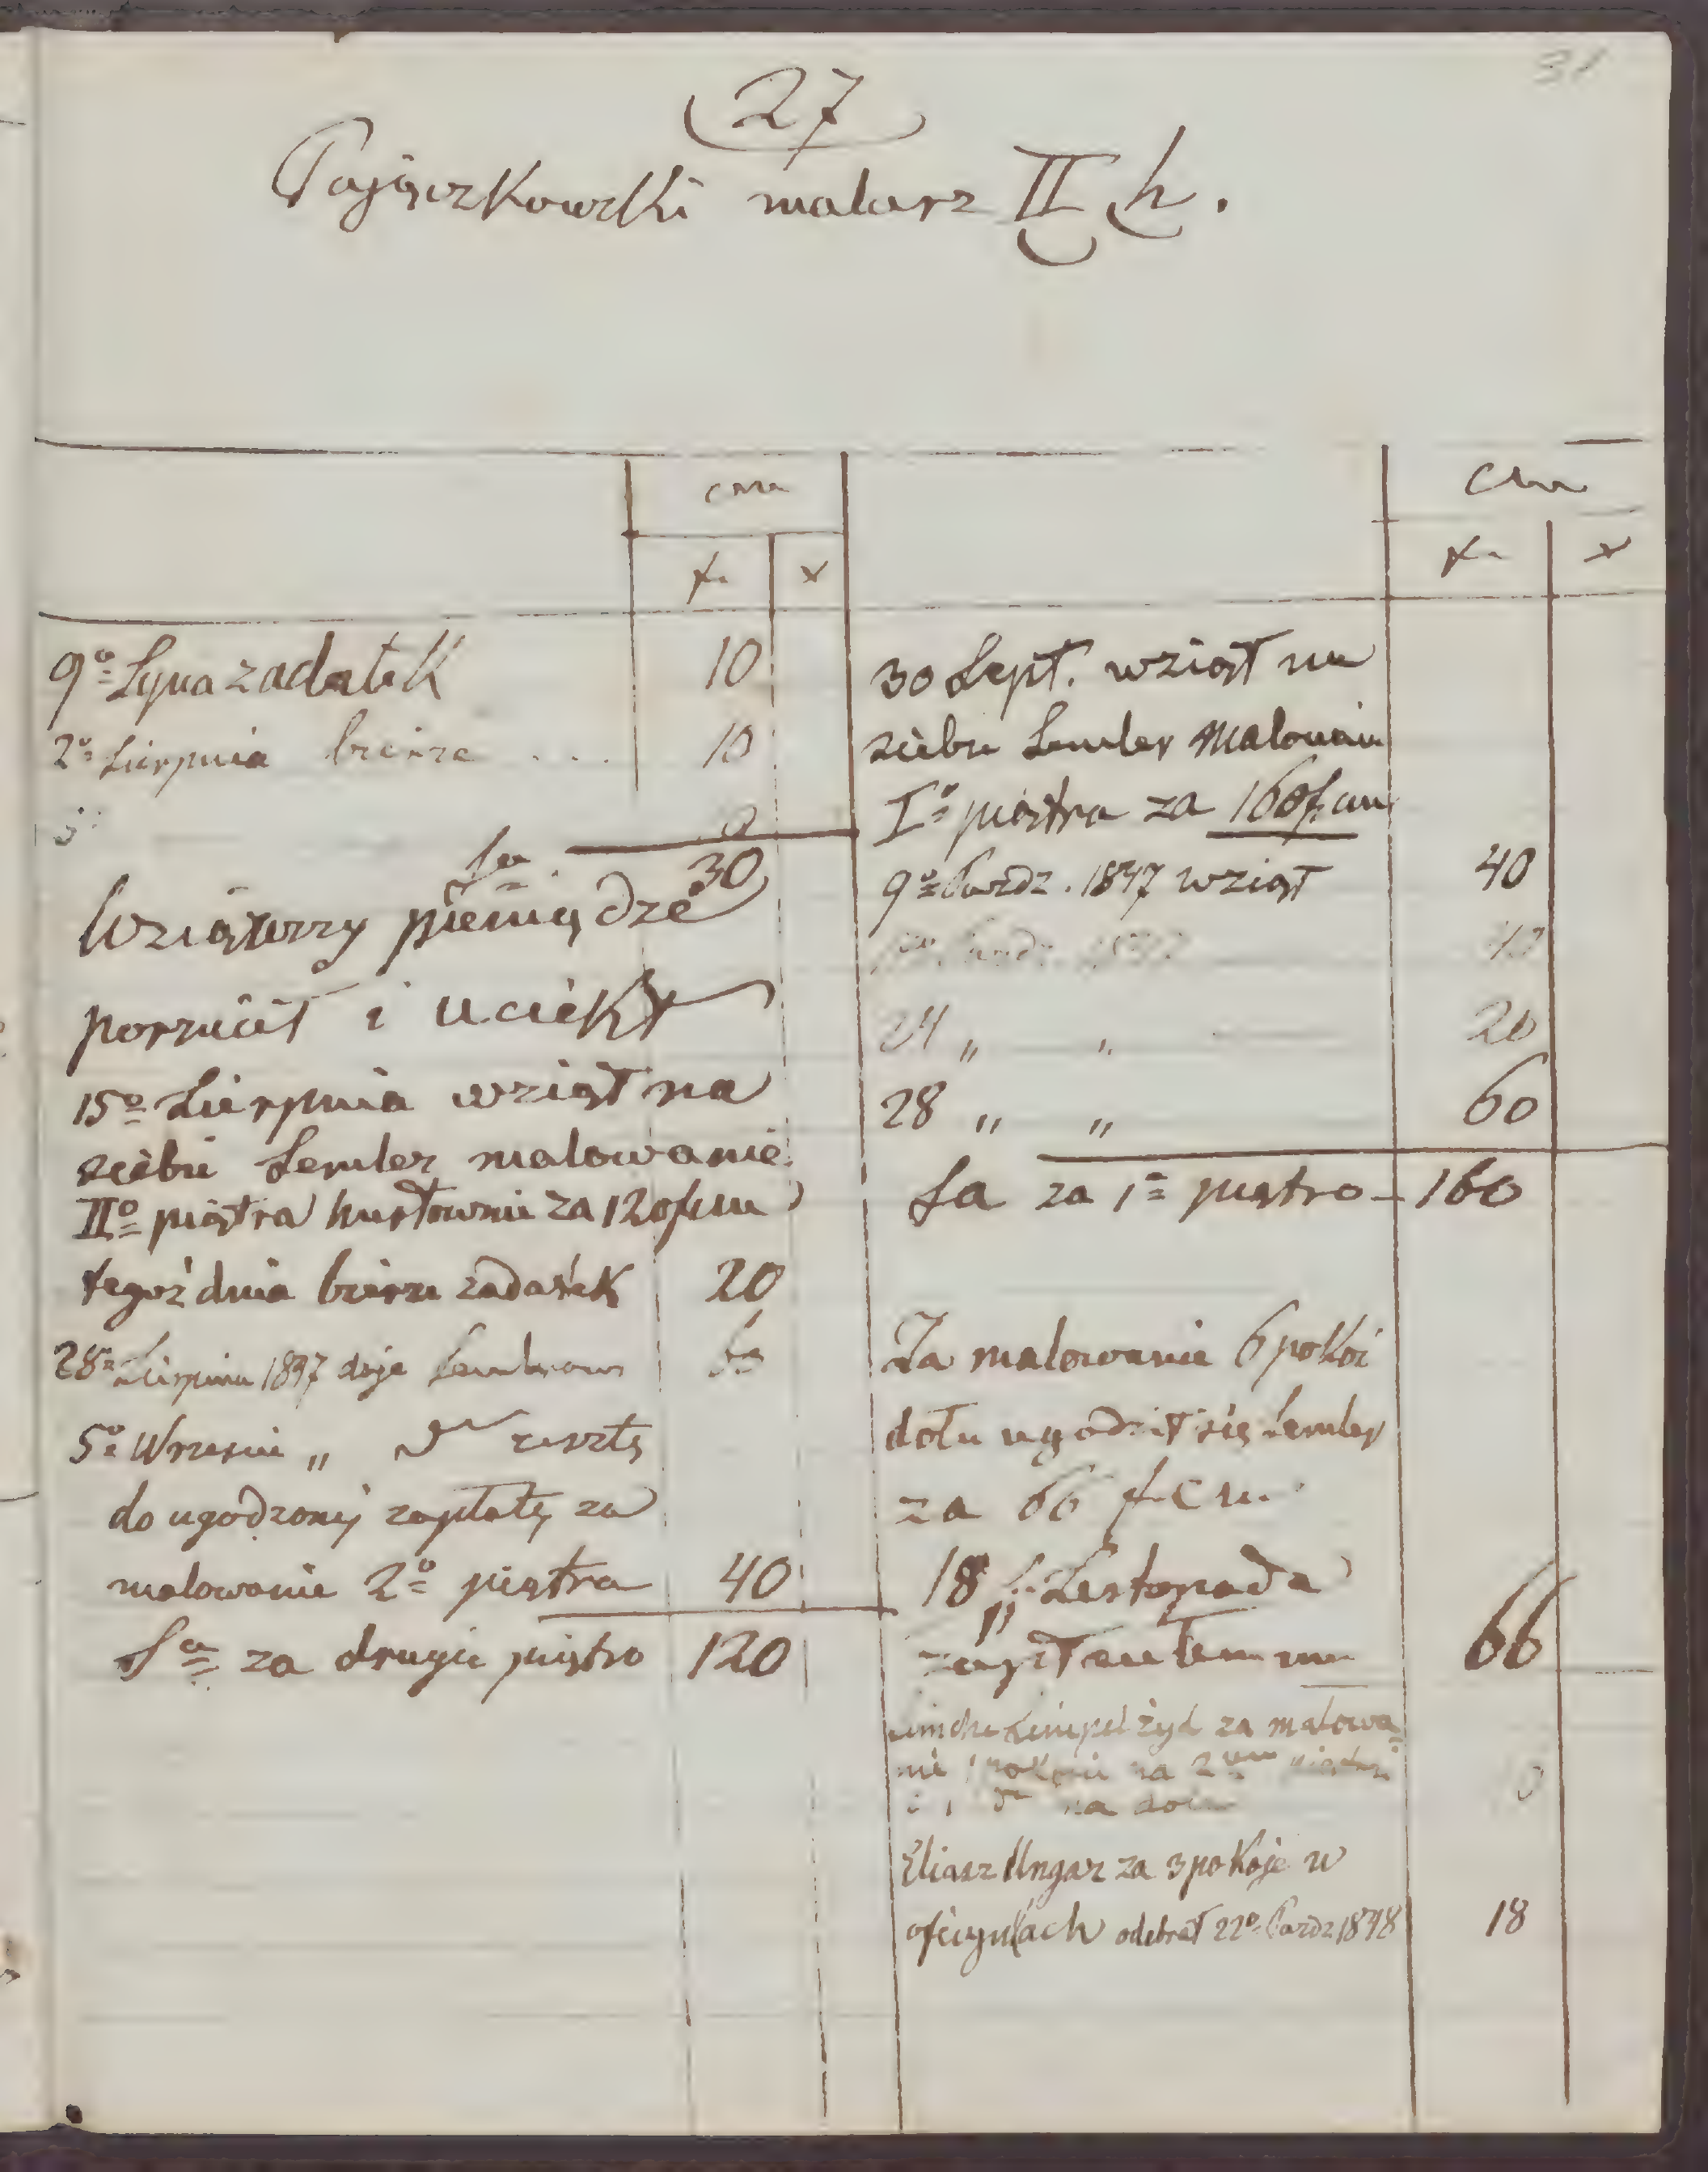 31
27
Pajączkowski malarz II h.
cmu
fr x
9º Lipca zadatek 10
2º Sierpnia bierze .... 10
Sa 30
Wziąwszy pieniądze
porzucił i uciekł
15º Sierpnia wziął na
siebie Semler malowanie
IIº piątra hurtownie za 120 fr mu
tegoż dnia bierze zadatek 20
28º Sierpnia 1847 daję
5º Wrześnie „ dº resztę
do ugodzonej zapłaty za
malowanie 2º piątra 40
Sa za drugie piątro 120
Cmu
fr x
30 Sept. wziął na
siebie Semler malowanie
Iº piątra za 160 fr cmu
9º Pazdz. 1847 wziął 40
24 „ „ 20
28 „ „ 60
Sa za 1º piątro 160
Za malowanie 6 pokoi
dołu ugodził się Semler
za 66 fr cmu.
18 „ Listopada
zapłaciłem mu 66
żyd za malowa
nie na 2
na dole
Eliasz Ungar za 3 pokoje w
oficynach odebrał 22º Pazdz 1848 18